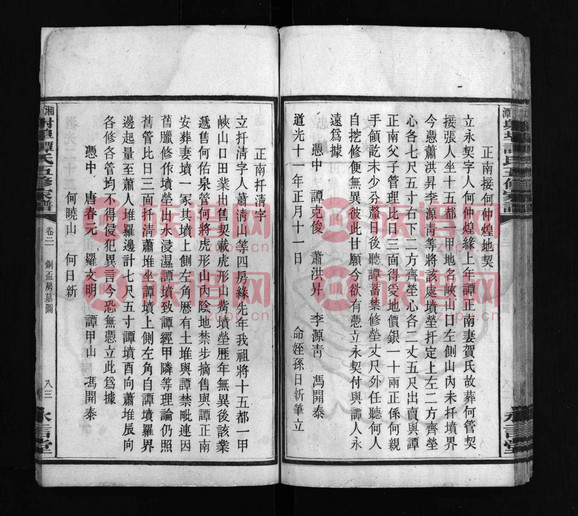 正南接何仲煌地契
立永契字人何仲煌緣上年譚正南妻賀氏故葬何管契
接張人坐十五都一甲地名峽山口左側山內未扦墳界
今憑蕭洪昇李源青等將該處墳塋扦定上左二方齊塋
心各七尺五寸右下二方齊塋心各二丈五尺出賣與譚
正南父子管理比日三面得受地價銀一十兩正係何親
手領訖未少分釐日後聽譚蓄禁修塋丈尺外任聽何人
自挖修便無異彼此甘願今欲有憑立永契付與譚人永
遠為據
憑中 譚克俊 蕭洪昇 李源青 馮開泰
道光十一年正月十一日 命姪孫日新筆立
正南扦清字
立扦清字人蕭清山等四房緣先年我祖將十五都一甲
峽山口田業出售契載虎形餘費墳塋歷年無異後該業
遞售何佑
安葬妻墳一冢其墳上側去角曆有土堆與譚禁毗連因
舊臘修作墳塋山水浸濕譚墳致譚經甲隣等理論仍照
舊管比日三面扦清蕭堆坐譚墳上側左角自譚墳羅界
邊起量至蕭人堆羅邊計七尺五寸譚墳酉向蕭堆辰向
各修各管均不得侵犯異言今恐無憑立此為據
憑中 唐春元 羅文明 譚甲山 馮開泰
何曉山 何日新
譚氏五修家譜
卷三
八三
永言堂